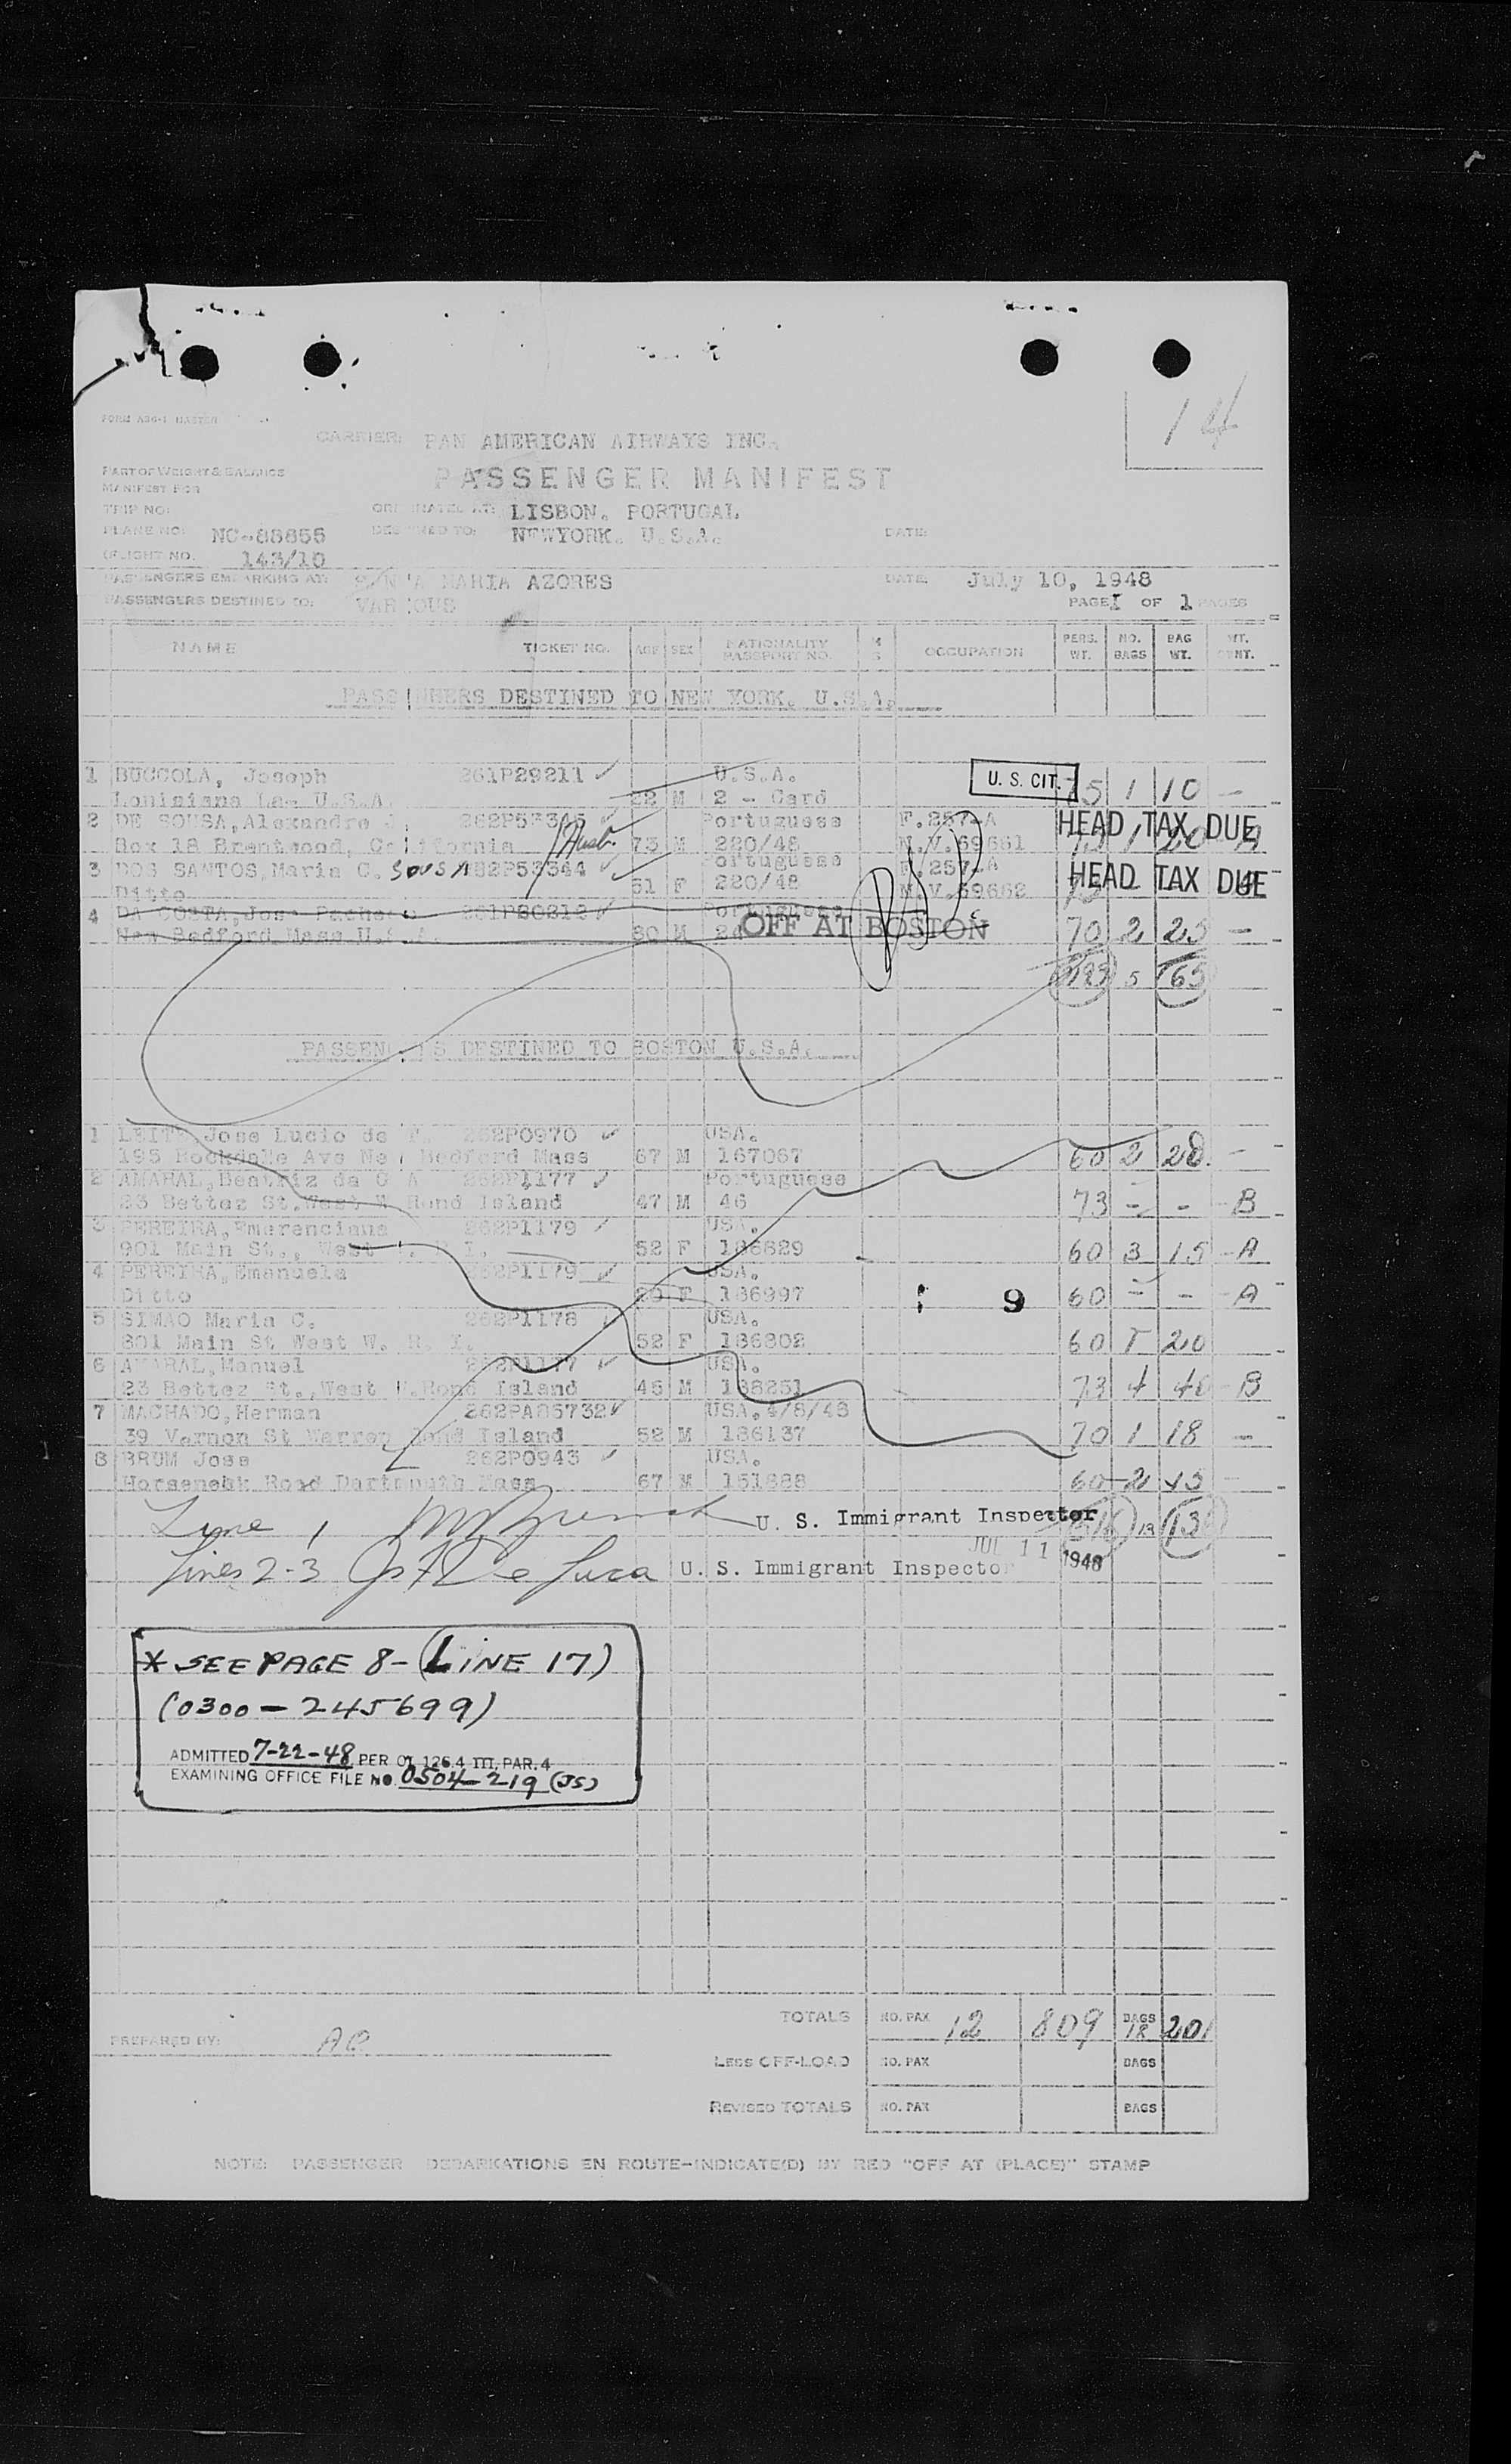 14
FORM
CARRIER: PAN AMERICAN AIRWAYS INC.
PART OF WEIGHT & BALANCE
MANIFEST FOR
PASSENGER MANIFEST
TRIP NO:
AT: LISBON. PORTUGAL
PLANE NO: NC-88855
TO: NEWYORK. U.S.A.
DATE:
FLIGHT NO. 143/10
PASSENGERS EMBARKING AT: MARIA AZORES
DATE: July 10, 1948
PASSENGERS DESTINED TO: VARIOUS
PAGE I OF 1 PAGES
NAME TICKET NO. AGE SEX NATIONALITY PASSPORT NO. OCCUPATION PERS. WT. NO. BAGS BAG WT. WT.
PASSENGERS DESTINED TO NEW YORK. U.S.A.
1 BUCCOLA, Joseph 261P29211 U.S.A. U. S. CIT.
Louisiana La- U.S.A. 22 M 2 - Card 75 1 10 -
2 DE SOUSA, Alexandre J. Portuguese F.257-A HEAD TAX DUE
Box 18 Brentwood, California 73 M 220/48 N.V.69661
3 DOS SANTOS, Maria C. SOUSA 262P53344 Portuguese F.257-A HEAD TAX DUE
Ditto 61 F 220/48 N.V.69662
4 DA COSTA, Jose Pacheco 261P80212 Portuguese
New Bedford Mass U.S.A. 80 M OFF AT BOSTON 70 2 25 -
5 65
PASSENGERS DESTINED TO BOSTON U.S.A.
1 LEITE Jose Lucio de 262P0970 USA.
195 Rockdale Ave New Bedford Mass 67 M 167067 60 2 28 -
2 AMARAL, Beatriz da C A 262P1177 Portuguese
23 Bettez St. West W Rond Island 47 M 46 73 - - B
3 PEREIRA, Emerenciana 262P1179 USA.
901 Main St., West R I. 52 F 186829 60 3 15 - A
4 PEREIRA, Emanuela 262P1179 USA.
Ditto 29 F 186997 : 9 60 - - A
5 SIMAO Maria C. 262P1178 USA.
601 Main St West W. R. I. 52 F 186802 60 1 20
6 AMARAL, Manuel 262P1177 USA.
23 Bettez St., West W.Rond Island 45 M 188251 73 4 40 - B
7 MACHADO, Herman 262PA85732 USA. 4/8/48
39 Vernon St Warren Rond Island 52 M 186137 70 1 18 -
8 BRUM Jose 262P0943 USA.
Horseneck Road Dartmouth Mass 67 M 151888 60 2 -
Line 1 U. S. Immigrant Inspector
JUL 11 1948
Lines 2-3 U. S. Immigrant Inspector
* SEE PAGE 8 - (LINE 17)
(0300 - 245699)
ADMITTED 7-22-48 PER PAR. 4
EXAMINING OFFICE FILE NO. 0504-219 (JS)
TOTALS NO. PAX 12 809 BAGS 18 201
PREPARED BY:
LESS OFF-LOAD NO. PAX BAGS
REVISED TOTALS NO. PAX BAGS
NOTE: PASSENGER DEBARKATIONS EN ROUTE-INDICATE(D) BY RED "OFF AT (PLACE)" STAMP